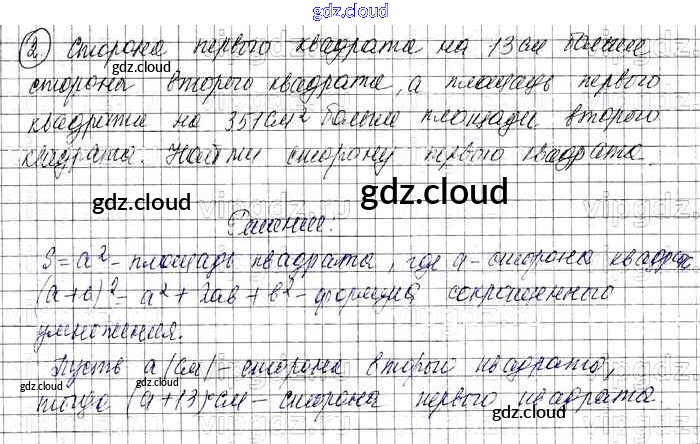 gdz.cloud
2. Сторона первого квадрата на 13 см больше
стороны второго квадрата, а площадь первого
квадрата на 351 см² больше площади второго
квадрата. Найти сторону первого квадрата.
gdz.cloud
gdz.cloud
gdz.cloud
gdz.cloud
vipgdz
Решение:
S = a² - площадь квадрата, где a - сторона квадрат
(a+b)² = a² + 2ab + b² - формула сокращенного
умножения.
gdz.cloud
gdz.cloud
Пусть a (см) - сторона второго квадрата,
тогда (a+13) см - сторона первого квадрата.
gdz.cloud
gdz.cloud